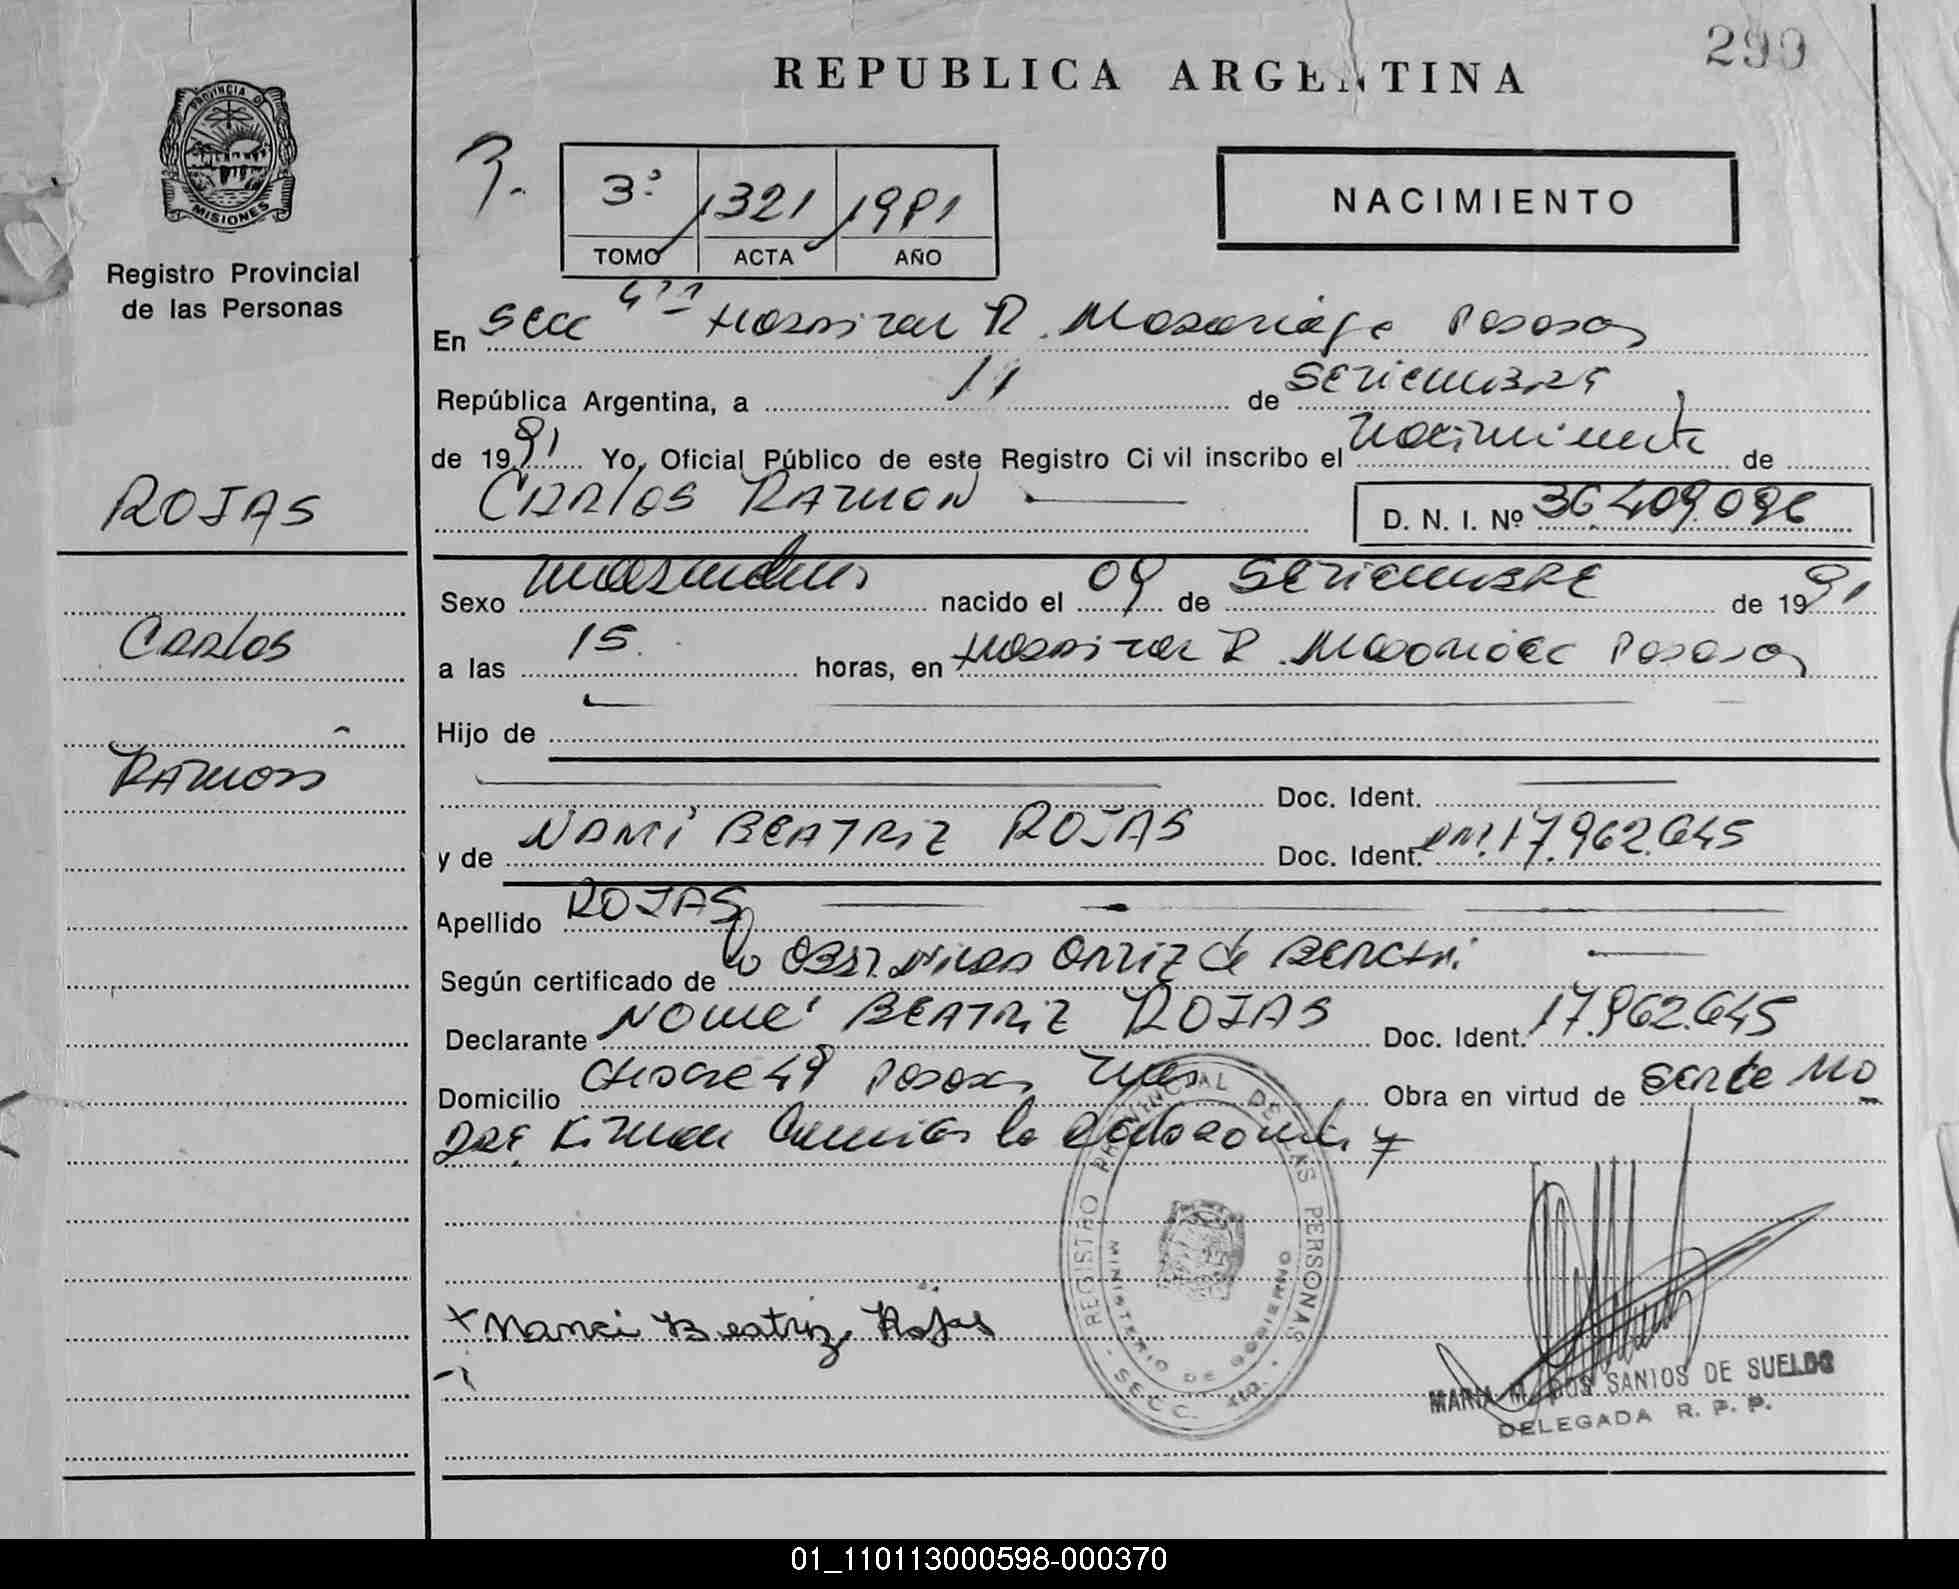 299
REPUBLICA ARGENTINA
PROVINCIA D
MISIONES
Registro Provincial
de las Personas
3º 1321 1991
TOMO ACTA AÑO
NACIMIENTO
En Secc 4ta Hospital R. Madariaga Posadas
República Argentina, a 11 de Setiembre
de 1991 Yo, Oficial Público de este Registro Civil inscribo el nacimiento de
ROJAS
CARLOS RAMON D. N. I. Nº 36.409.096
Sexo masculino nacido el 09 de SETIEMBRE de 1991
Carlos
a las 15 horas, en Hospital R. Madariaga Posadas
Hijo de
Ramon
Doc. Ident.
y de NANCI BEATRIZ ROJAS Doc. Ident. DNI. 17.962.645
Apellido ROJAS
Según certificado de la Obst. Ortiz de
Declarante NANCI BEATRIZ ROJAS Doc. Ident. 17.962.645
Domicilio Chacra 49 Posadas Mnes Obra en virtud de ser la Ma
dre. Firman la
REGISTRO PROVINCIAL DE LAS PERSONAS
MINISTERIO DE GOBIERNO
SECC. 4ta.
x Nanci Beatriz Rojas
MARIA M. DOS SANTOS DE SUELDO
DELEGADA R. P. P.
01_110113000598-000370